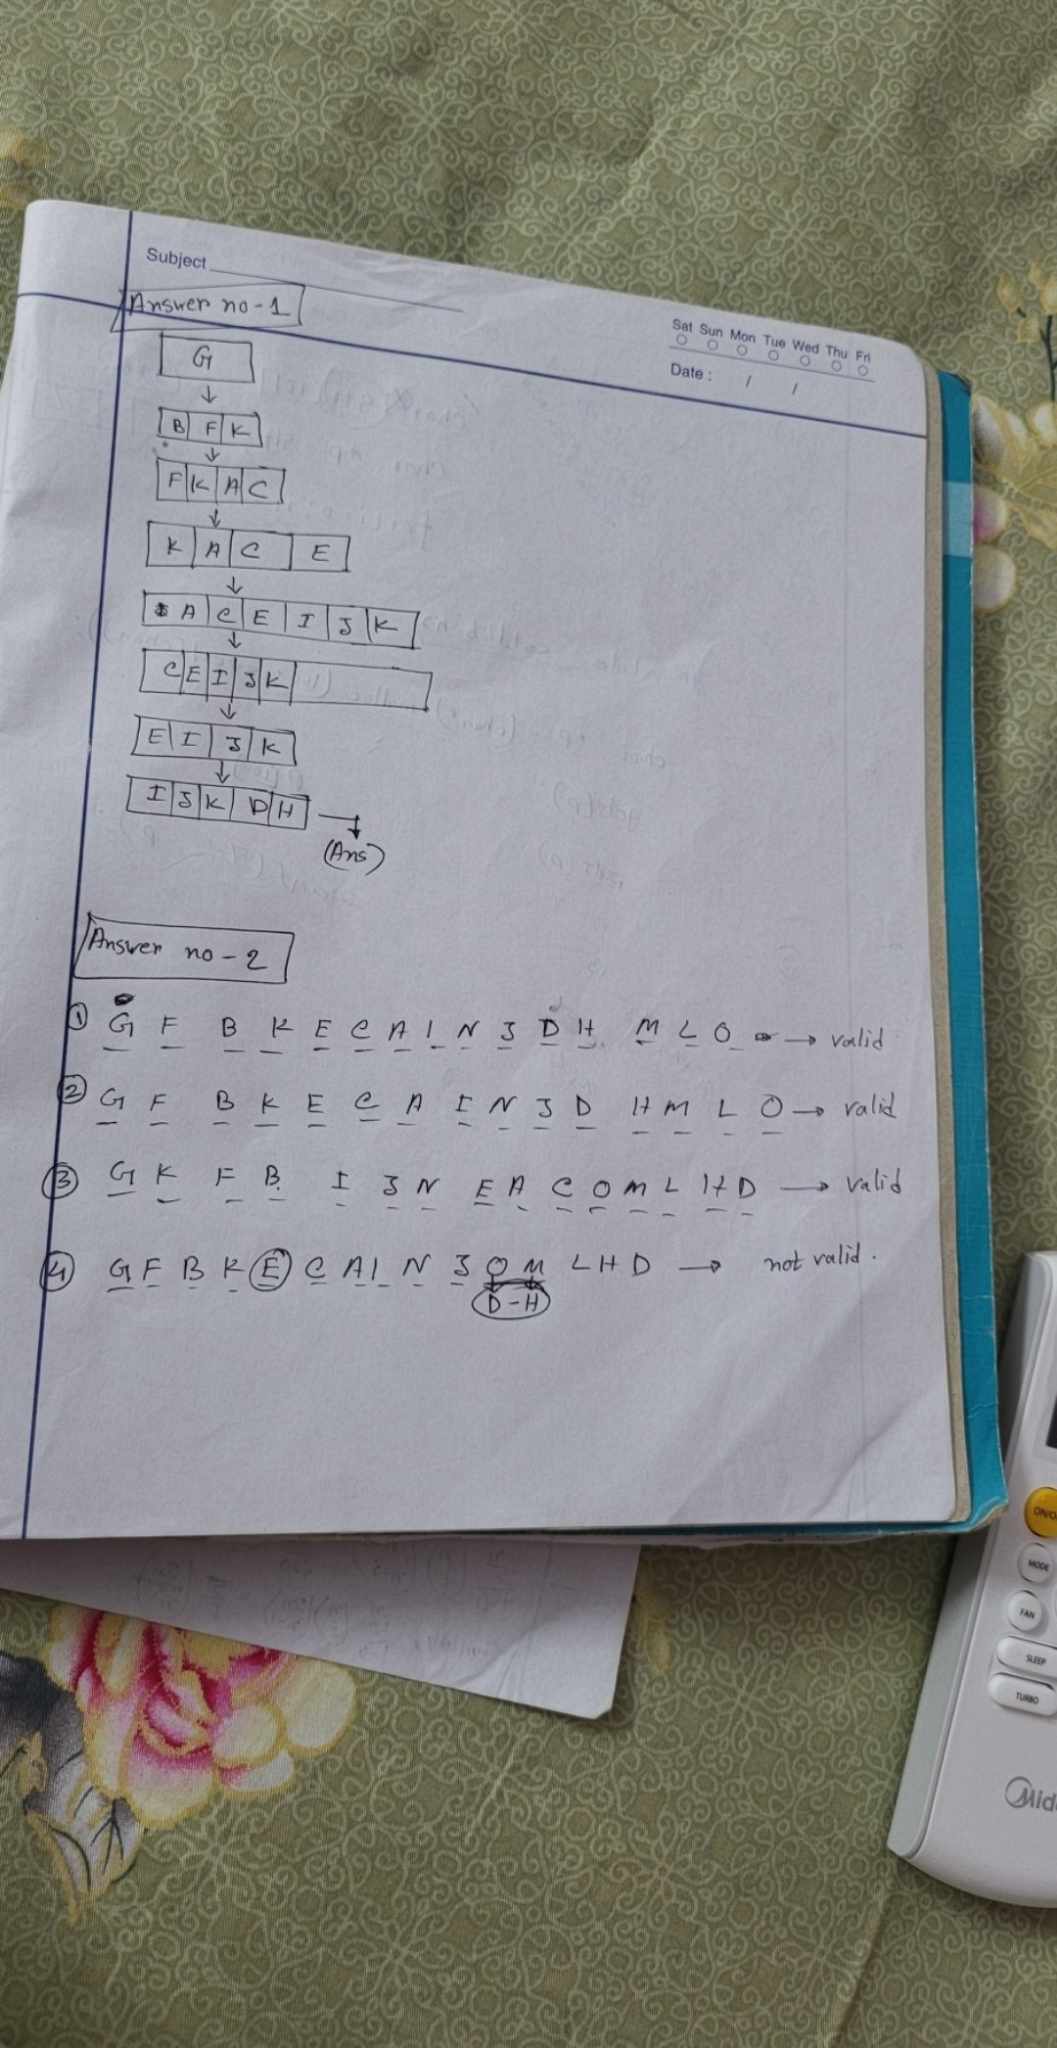 Subject
Answer no-1
Sat Sun Mon Tue Wed Thu Fri
Date : / /
G
B F K
F K A C
K A C E
A C E I J K
C E I J K
E I J K
I J K D H
(Ans)
Answer no-2
① G F B K E C A I N J D H M L O → valid
② G F B K E C A I N J D H M L O → valid
③ G K F B. I J N E A C O M L H D → valid
④ G F B K E C A I N J O M L H D → not valid.
D-H
ON/O
MODE
FAN
SLEEP
TURBO
Mid